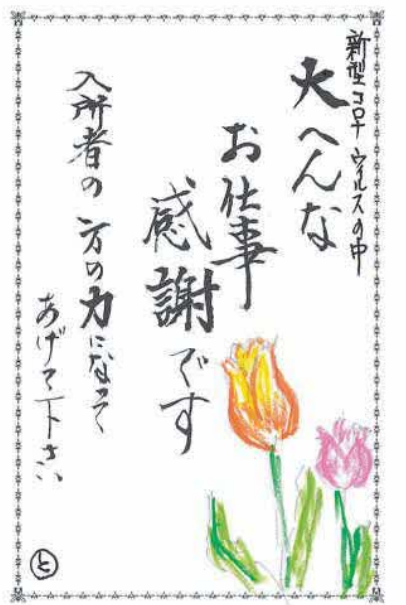 新型コロナウイルスの中
大へんな
お仕事
感謝です
入所者の方の力になって
あげて下さい
と